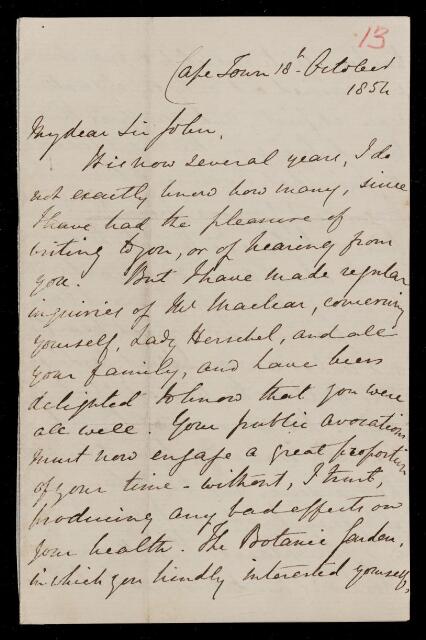 13
Cape Town 18th October
1854
My dear Sir John,
It is now several years, I do
not exactly know how many, since
I have had the pleasure of
writing to you, or of hearing from
you. But I have made regular
inquiries of Mr Maclear, concerning
yourself, Lady Herschel, and all
your family, and have been
delighted to know that you were
all well. Your public avocations
must now engage a great proportion
of your time - without, I trust,
producing any bad effects on
your health. The Botanic Garden,
in which you kindly interested yourself,